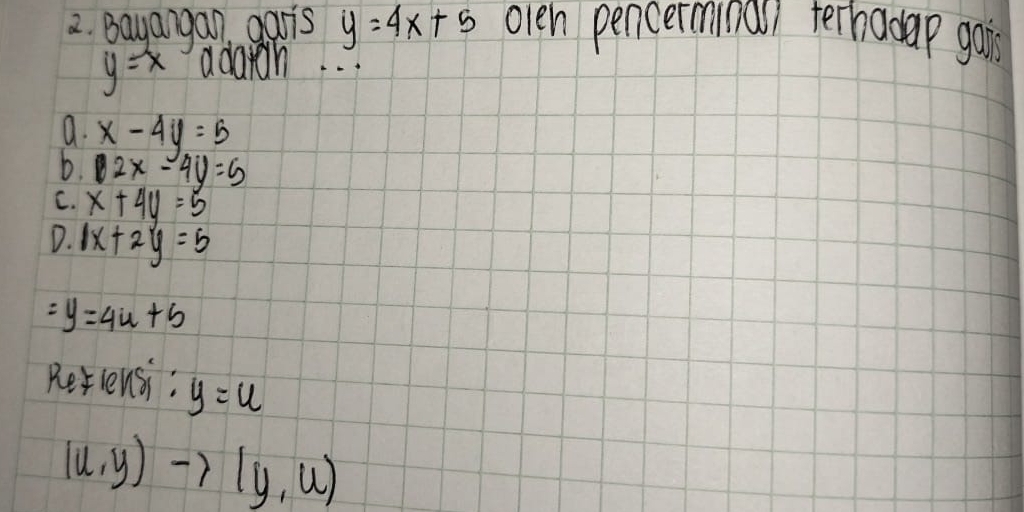 2. Bayangan garis y = 4x + 5 oleh pencerminan terhadap garis
y = x adalah ...
a. x - 4y = 5
b. 2x - 4y = 5
c. x + 4y = 5
D. 1x + 2y = 5
= y = 4u + 5
Reflensi : y = u
(u, y) -> (y, u)